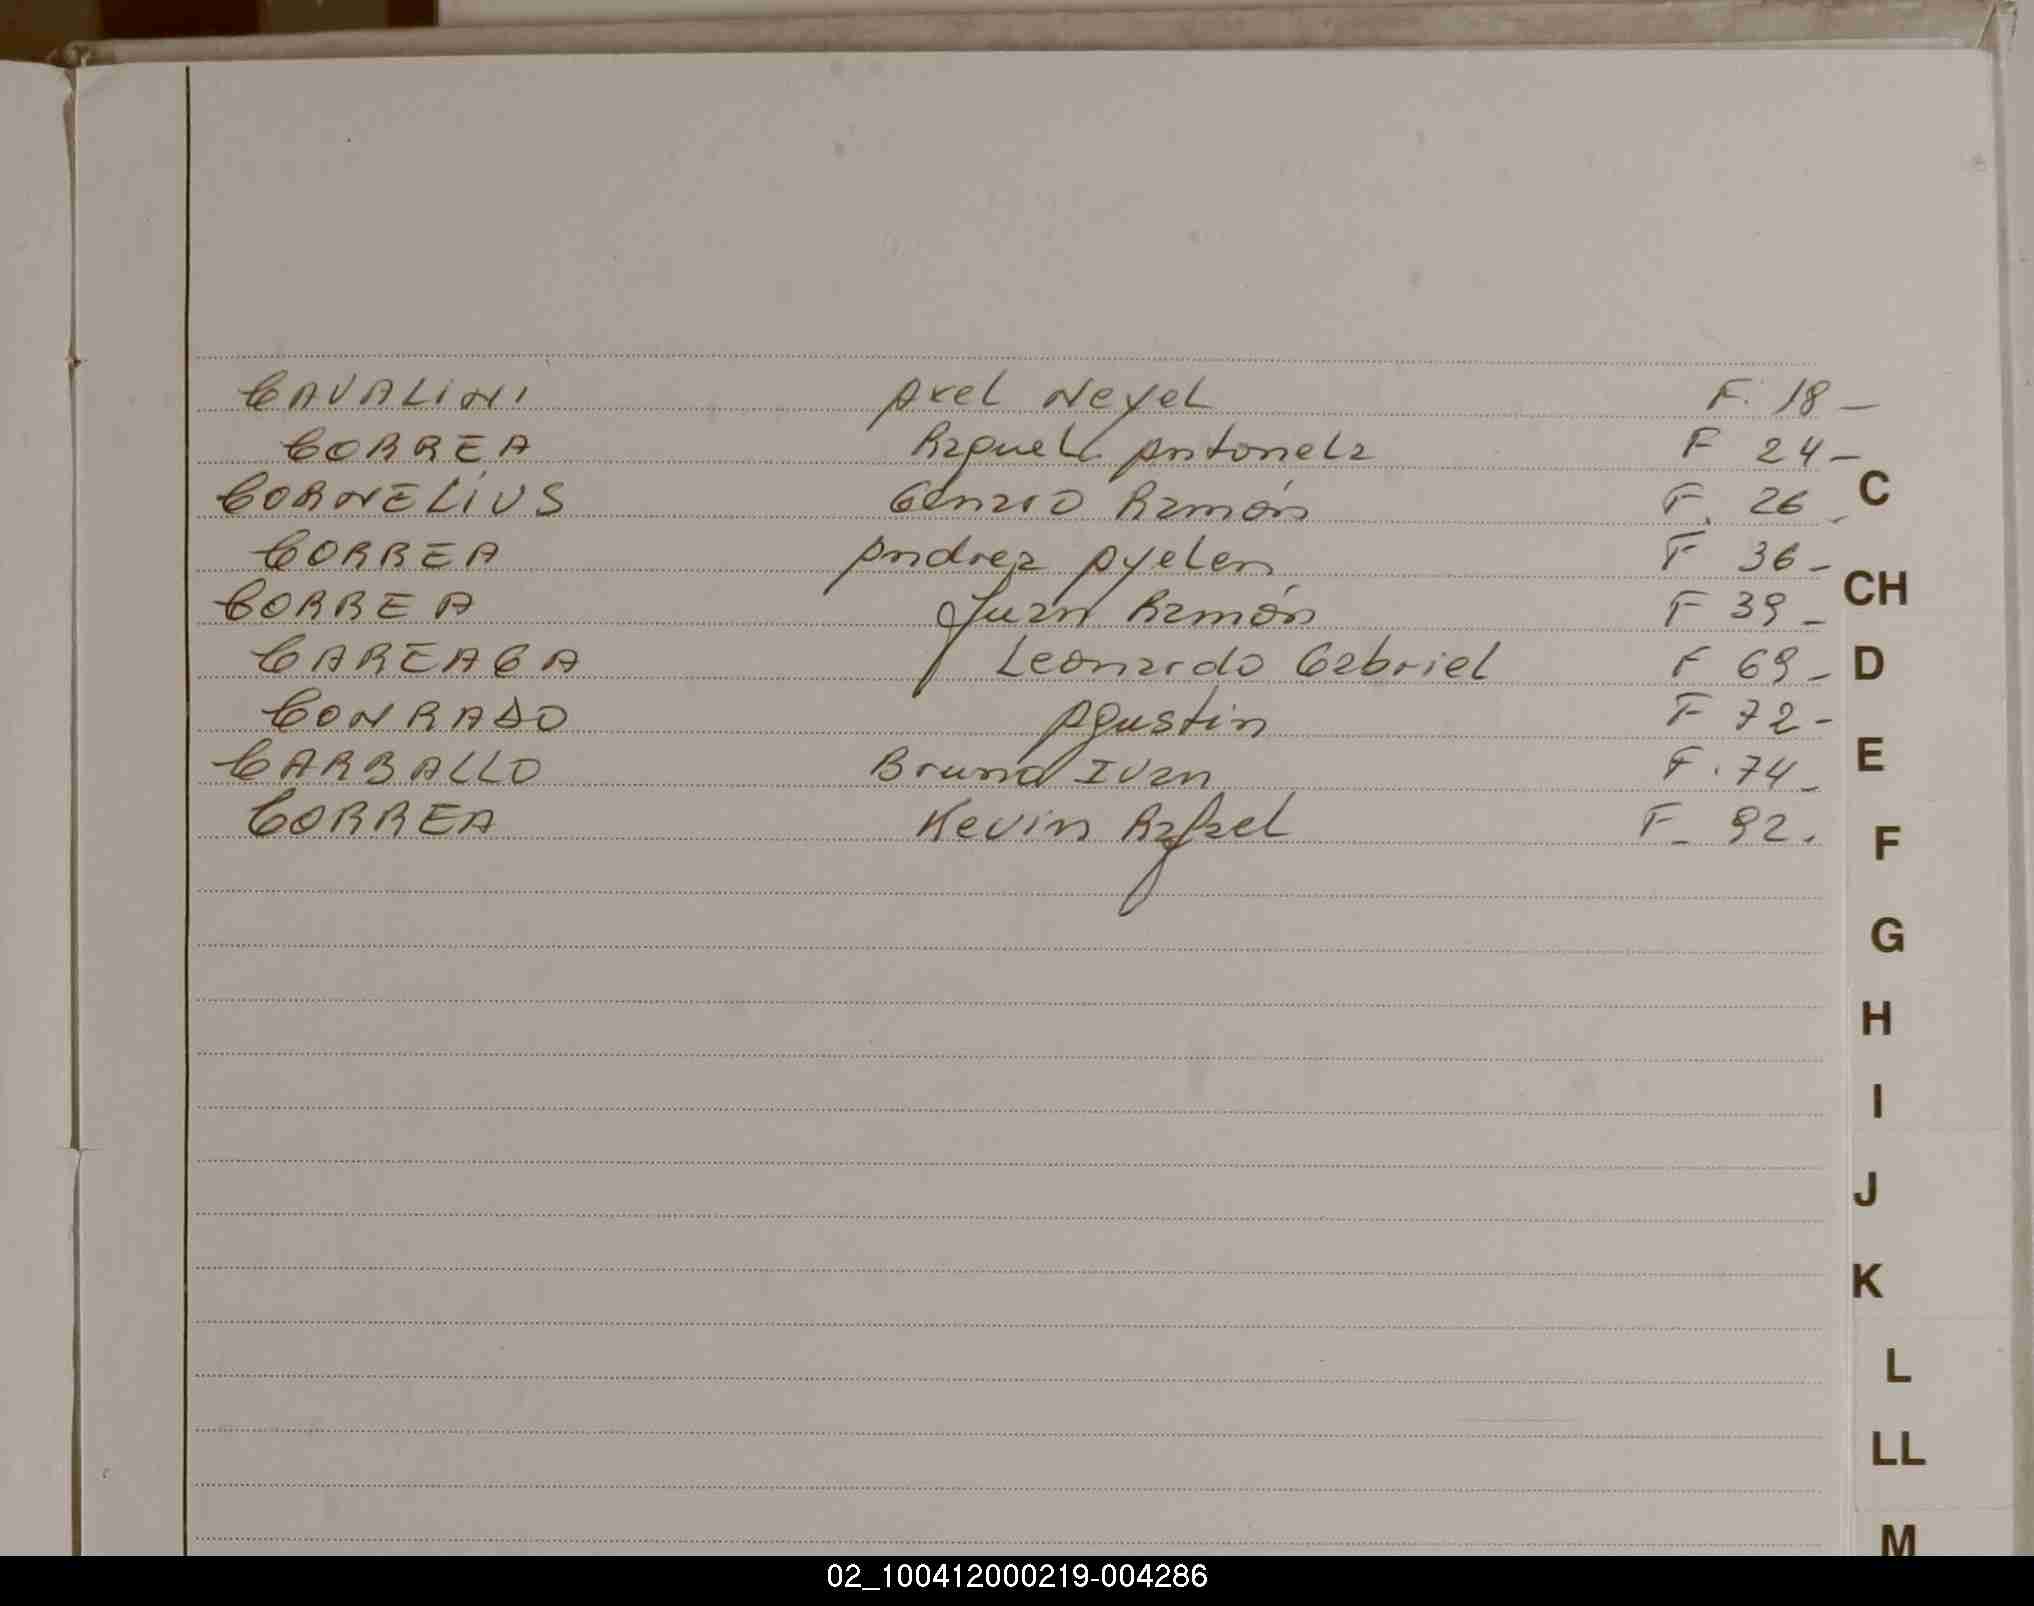 CAVALINI Axel Neyel F. 18 -
CORREA Raquel Antonela F 24 -
CORNELIUS Genaro Ramón F. 26 -
CORREA Andrea Ayelen F 36 -
CORREA Juan Ramón F 39 -
CAREAGA Leonardo Gabriel F 69 -
CONRADO Agustin F 72 -
CARBALLO Bruno Ivan F. 74 -
CORREA Kevin Rafael F. 92.
C
CH
D
E
F
G
H
I
J
K
L
LL
M
02_100412000219-004286